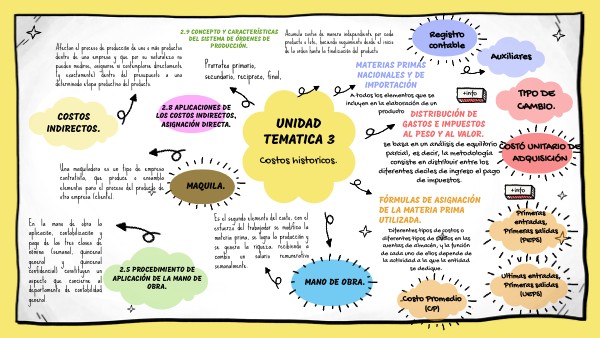 2.9 CONCEPTO Y CARACTERÍSTICAS
DEL SISTEMA DE ÓRDENES DE
PRODUCCIÓN.
Acumula costos de manera independiente por cada
producto o lote, haciendo seguimiento desde el inicio
de la orden hasta la finalización del producto
Registro
contable
Auxiliares
Afectan al proceso de producción de uno o más productos
dentro de una empresa y que por su naturaleza no
pueden medirse, asignarse ni contemplarse directamente
(y exactamente) dentro del presupuesto a una
determinada etapa productiva del producto.
Prorrateo primario,
secundario, reciproco, final,
MATERIAS PRIMAS
NACIONALES Y DE
IMPORTACIÓN
A todos los elementos que se
incluyen en la elaboración de un
producto
+info
TIPO DE
CAMBIO.
COSTOS
INDIRECTOS.
2.8 APLICACIONES DE
LOS COSTOS INDIRECTOS,
ASIGNACIÓN DIRECTA.
UNIDAD
TEMATICA 3
Costos historicos.
DISTRIBUCIÓN DE
GASTOS E IMPUESTOS
AL PESO Y AL VALOR.
se basa en un análisis de equilibrio
parcial, es decir, la metodología
consiste en distribuir entre los
diferentes deciles de ingreso el pago
de impuestos.
COSTÓ UNITARIO DE
ADQUISICIÓN
Una maquiladora es un tipo de empresa
contratista, que produce o ensambla
elementos para el proceso del producto de
otra empresa (cliente).
MAQUILA.
+info
FÓRMULAS DE ASIGNACIÓN
DE LA MATERIA PRIMA
UTILIZADA.
Diferentes tipos de costos o
diferentes tipos de salidas en las
cuentas de almacén, y la función
de cada uno de ellos depende de
la actividad a la que la entidad
se dedique.
Primeras
entradas,
Primeras salidas
(PEPS)
En la mano de obra la
aplicación, contabilización y
pago de las tres clases de
nómina (semanal, quincenal
general y quincenal
confidencial) constituyen un
aspecto que concierne al
departamento de contabilidad
general.
2.5 PROCEDIMIENTO DE
APLICACIÓN DE LA MANO DE
OBRA.
Es el segundo elemento del costo, con el
esfuerzo del trabajador se modifica la
materia prima, se logra la producción y
se genera la riqueza, recibiendo a
cambio un salario remunerativo
semanalmente.
MANO DE OBRA.
Costo Promedio
(CP)
Ultimas entradas,
Primeras salidas
(UEPS)